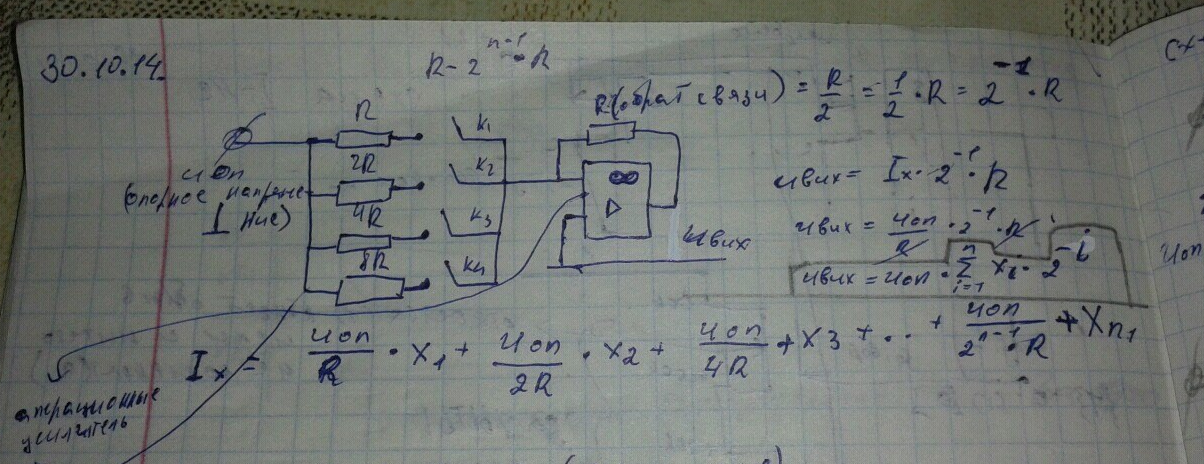 30.10.14
R - 2^{n-1} · R
R (обрат связи) = R/2 = 1/2 · R = 2^{-1} · R
R
K1
2R
K2
4R
K3
8R
K4
Uоп
(опорное напряжение)
I
∞
▷
Uвих
Uвих = Ix · 2^{-1} · R
Uвих = Uоп/R · 2^{-1} · R
Uвих = Uоп · ∑_{i=1}^{n} Xi · 2^{-i}
Ix = Uоп/R · X1 + Uоп/2R · X2 + Uоп/4R + X3 + .. + Uоп/2^{n-1}·R + Xn1
операционные
усилитель
Uоп